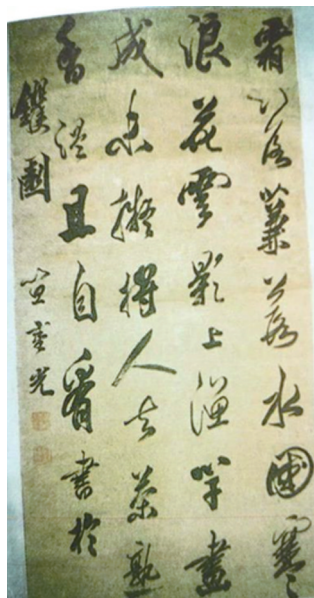 霜落蒹葭水國寒
浪花雲影上漁竿畫
成未擬將人去茶熟
香溫且自看書於
笪重光